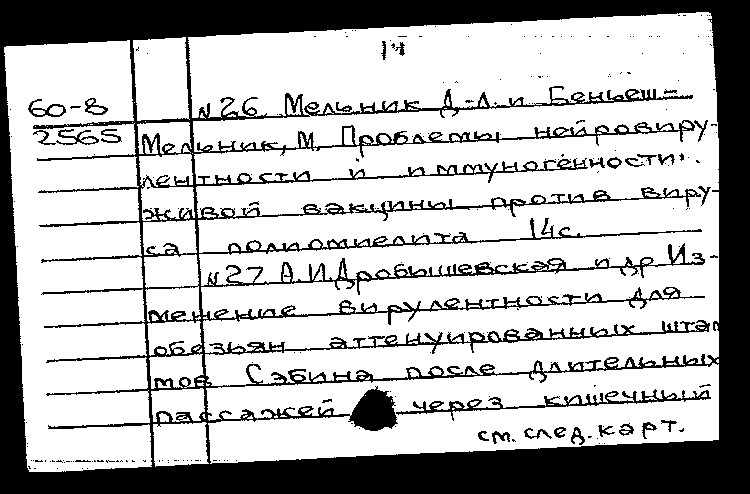 14
60-8 №26 Мельник Д.-Л. и Беньеш-
2565 Мельник, М. Проблемы нейровиру-
лентности и иммуногенности
живой вакцины против виру-
са полиомиелита 14с.
№27 А.И.Дробышевская и др Из-
менение вирулентности для
обезьян аттенуированных штам
мов Сэбина после длительных
пассажей через кишечный
см. след. карт.